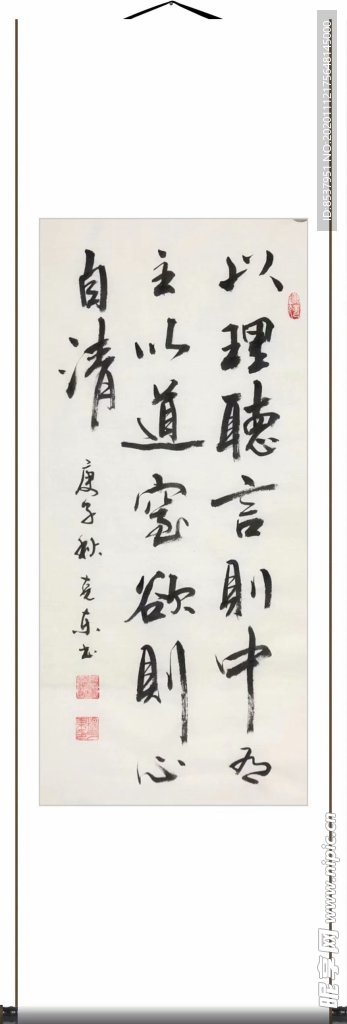 以理聽言則中有
主以道窒欲則心
自清
庚子秋克東书
ID:8537951 NO:20201112175648145000
昵享网 www.nipic.cn